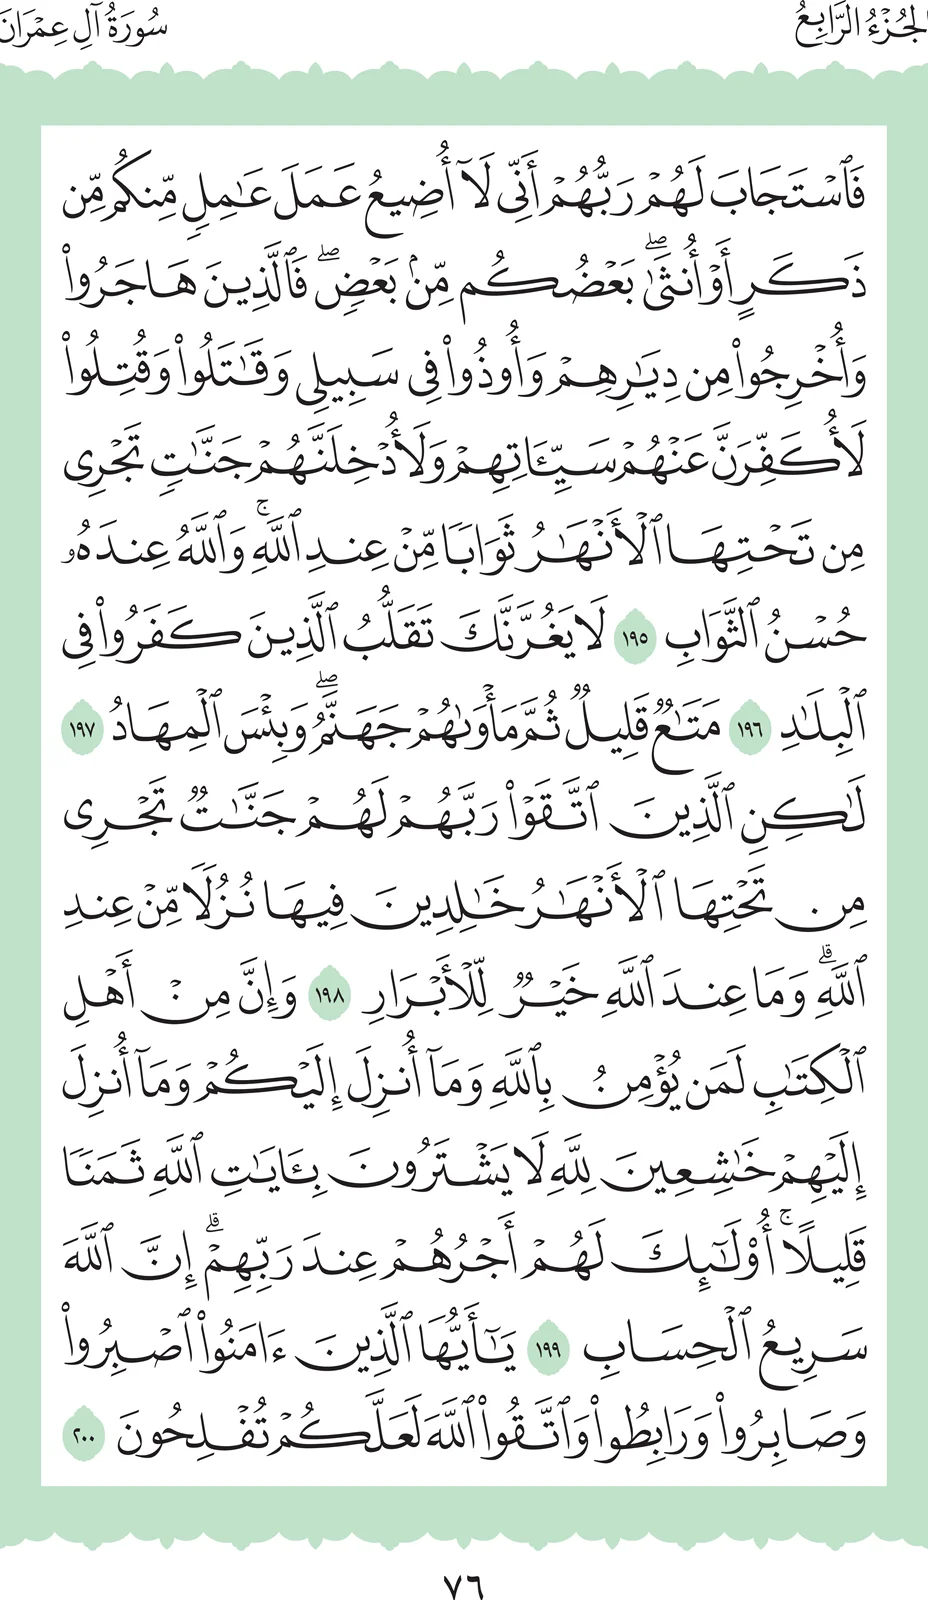 الجُزْءُ الرَّابِعُ
سُورَةُ آلِ عِمْرَانَ
فَٱسْتَجَابَ لَهُمْ رَبُّهُمْ أَنِّى لَآ أُضِيعُ عَمَلَ عَٰمِلٍ مِّنكُم مِّن
ذَكَرٍ أَوْ أُنثَىٰۖ بَعْضُكُم مِّنۢ بَعْضٍۖ فَٱلَّذِينَ هَاجَرُوا۟
وَأُخْرِجُوا۟ مِن دِيَٰرِهِمْ وَأُوذُوا۟ فِى سَبِيلِى وَقَٰتَلُوا۟ وَقُتِلُوا۟
لَأُكَفِّرَنَّ عَنْهُمْ سَيِّـَٔاتِهِمْ وَلَأُدْخِلَنَّهُمْ جَنَّٰتٍ تَجْرِى
مِن تَحْتِهَا ٱلْأَنْهَٰرُ ثَوَابًا مِّنْ عِندِ ٱللَّهِۚ وَٱللَّهُ عِندَهُۥ
حُسْنُ ٱلثَّوَابِ ١٩٥ لَا يَغُرَّنَّكَ تَقَلُّبُ ٱلَّذِينَ كَفَرُوا۟ فِى
ٱلْبِلَٰدِ ١٩٦ مَتَٰعٌ قَلِيلٌ ثُمَّ مَأْوَىٰهُمْ جَهَنَّمُۖ وَبِئْسَ ٱلْمِهَادُ ١٩٧
لَٰكِنِ ٱلَّذِينَ ٱتَّقَوْا۟ رَبَّهُمْ لَهُمْ جَنَّٰتٌ تَجْرِى
مِن تَحْتِهَا ٱلْأَنْهَٰرُ خَٰلِدِينَ فِيهَا نُزُلًا مِّنْ عِندِ
ٱللَّهِۗ وَمَا عِندَ ٱللَّهِ خَيْرٌ لِّلْأَبْرَارِ ١٩٨ وَإِنَّ مِنْ أَهْلِ
ٱلْكِتَٰبِ لَمَن يُؤْمِنُ بِٱللَّهِ وَمَآ أُنزِلَ إِلَيْكُمْ وَمَآ أُنزِلَ
إِلَيْهِمْ خَٰشِعِينَ لِلَّهِ لَا يَشْتَرُونَ بِـَٔايَٰتِ ٱللَّهِ ثَمَنًا
قَلِيلًاۚ أُو۟لَٰٓئِكَ لَهُمْ أَجْرُهُمْ عِندَ رَبِّهِمْۗ إِنَّ ٱللَّهَ
سَرِيعُ ٱلْحِسَابِ ١٩٩ يَٰٓأَيُّهَا ٱلَّذِينَ ءَامَنُوا۟ ٱصْبِرُوا۟
وَصَابِرُوا۟ وَرَابِطُوا۟ وَٱتَّقُوا۟ ٱللَّهَ لَعَلَّكُمْ تُفْلِحُونَ ٢٠٠
٧٦